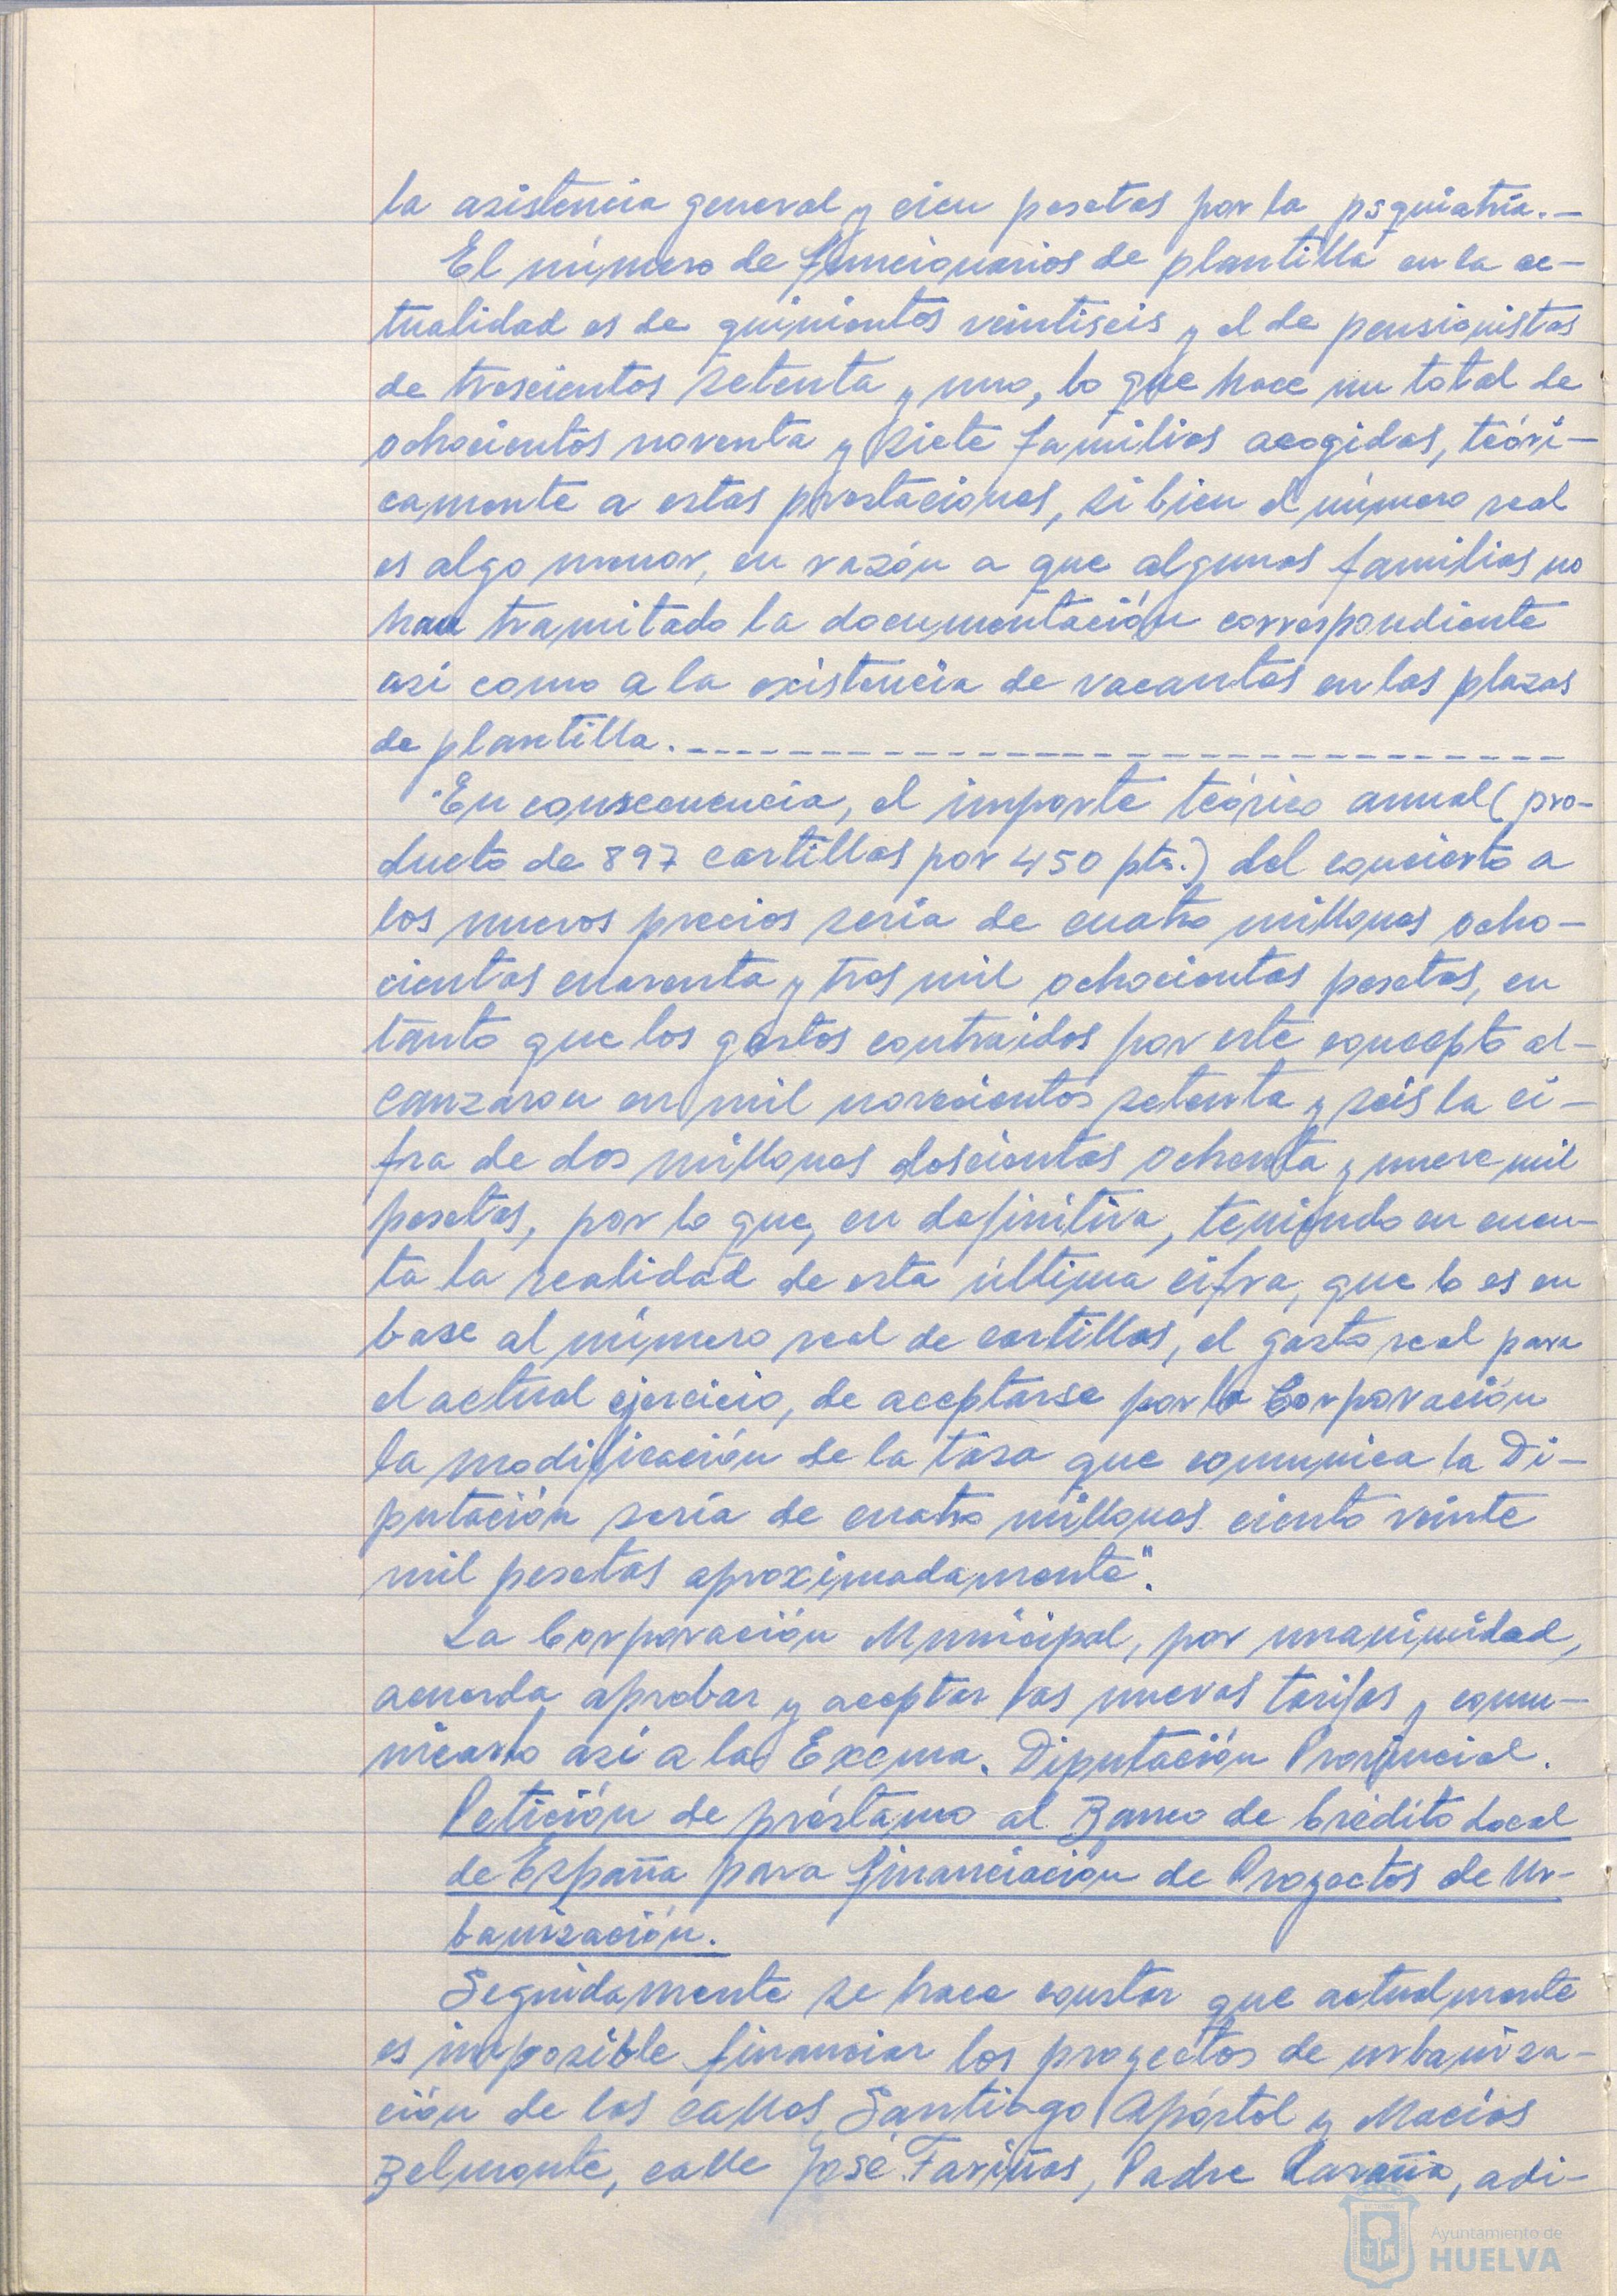 la asistencia general y cien pesetas por la psquiatría.-
El número de funcionarios de plantilla en la ac-
tualidad es de quinientos veintiseis y el de pensionistas
de trescientos setenta y uno, lo que hace un total de
ochocientos noventa y siete familias acogidas, teóri-
camente a estas prestaciones, si bien el número real
es algo menor, en razón a que algunas familias no
han tramitado la documentación correspondiente
asi como a la existencia de vacantes en las plazas
de plantilla.
"En consecuencia, el importe teórico anual (pro-
ducto de 897 cartillas por 450 pts.) del concierto a
los nuevos precios sería de cuatro millones ocho-
cientas cuarenta y tres mil ochocientas pesetas, en
tanto que los gastos contraidos por este concepto al-
canzaron en mil novecientos setenta y seis la ci-
fra de dos millones doscientas ochenta y nueve mil
pesetas, por lo que, en definitiva, teniendo en cuen-
ta la realidad de esta última cifra, que lo es en
base al número real de cartillas, el gasto real para
el actual ejercicio, de aceptarse por la Corporación
la modificación de la tasa que comunica la Di-
putación sería de cuatro millones ciento veinte
mil pesetas aproximadamente".
La Corporación Municipal, por unanimidad,
acuerda aprobar y aceptar las nuevas tarifas y comu-
nicarlo asi a la Excma. Diputación Provincial.
Petición de préstamo al Banco de Crédito Local
de España para financiación de Proyectos de Ur-
banización.
Seguidamente se hace constar que actualmente
es imposible financiar los proyectos de urbaniza-
ción de las calles Santiago Apóstol y Macias
Belmonte, calle José Fariñas, Padre Laraña, adi-
Ayuntamiento de
HUELVA